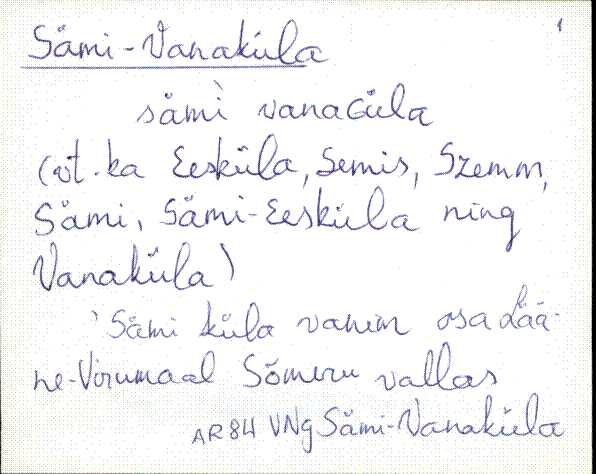 1
Sämi-Vanaküla
sämì vanaGüla
(vt. ka Eesküla, Semis, Szemm,
Sämi, Sämi-Eesküla ning
Vanaküla)
'Sämi küla vanim osa Lää-
ne-Virumaal Sõmeru vallas
AR84 VNg Sämi-Vanaküla